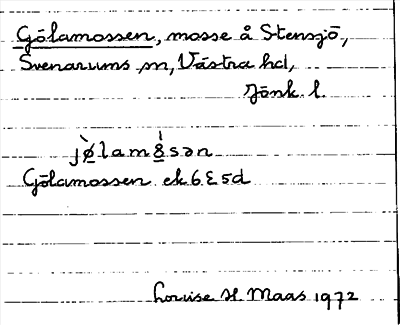 Gölamossen, mosse å Stensjö,
Svenarums sn, Västra hd,
Jönk l.
jø̀lamȯ̀sən
Gölamossen ek 6 E 5d
Louise H. Maas 1972